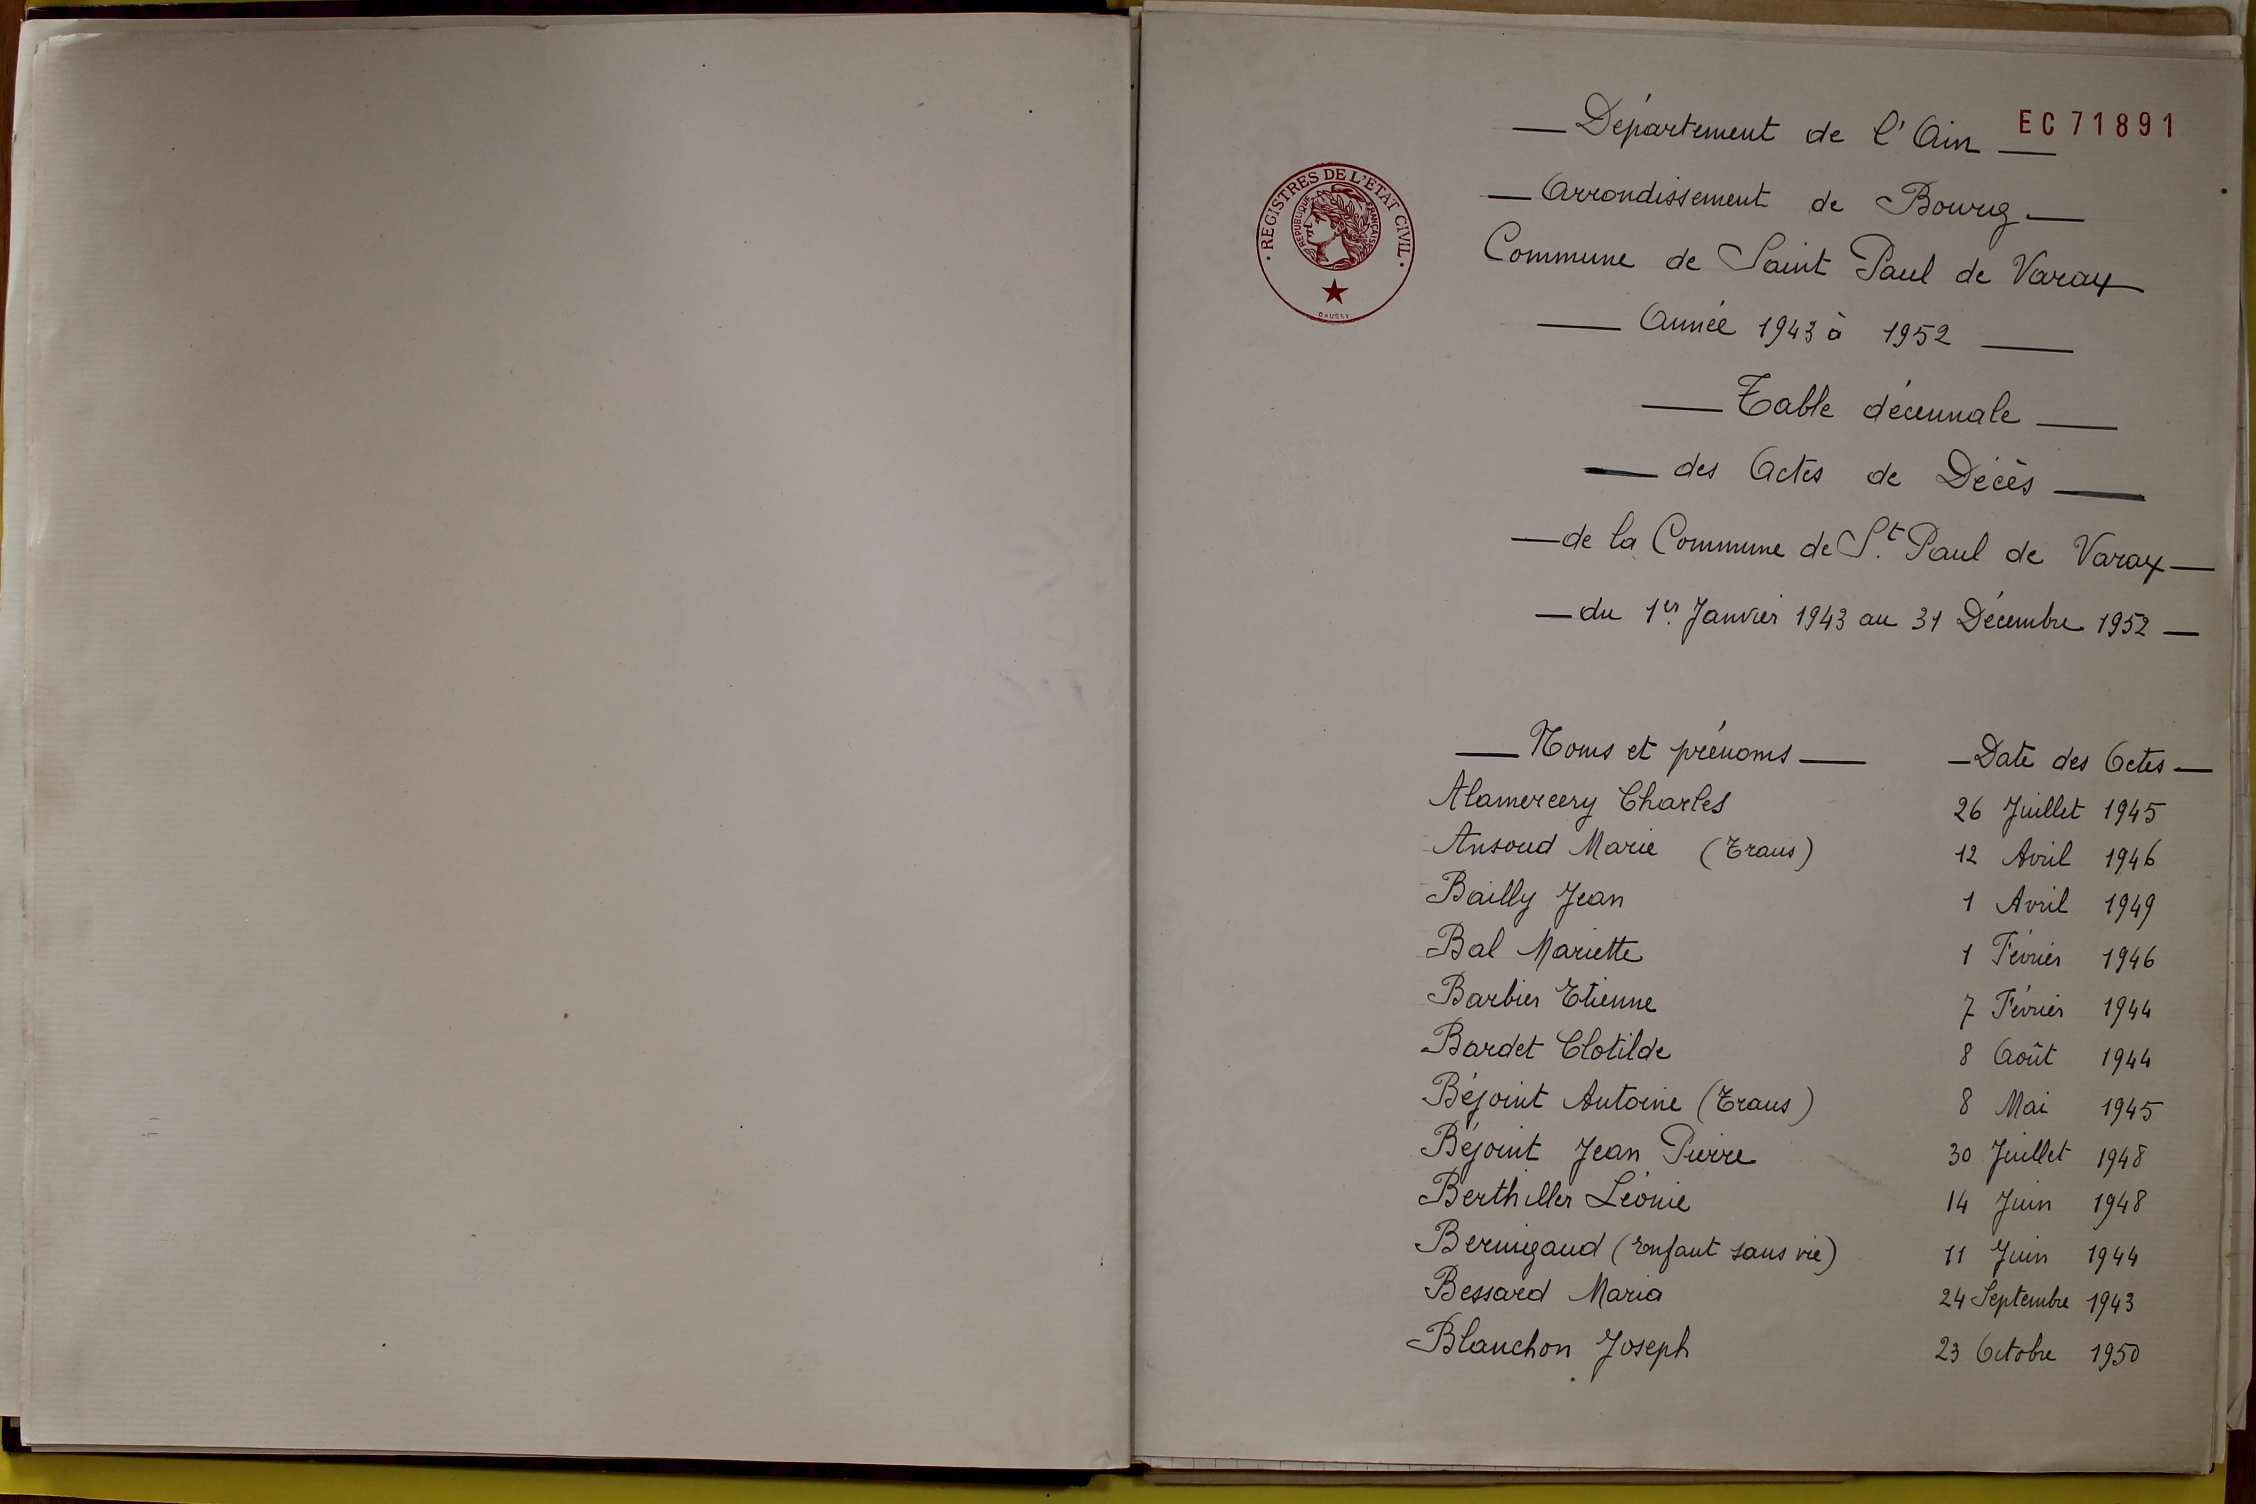 EC 71891
— Département de l'Ain —
REGISTRES DE L'ETAT CIVIL
REPUBLIQUE FRANÇAISE
DAUSSY
— Arrondissement de Bourg —
Commune de Saint Paul de Varax
— Année 1943 à 1952 —
— Table décennale —
— des Actes de Décès —
— de la Commune de St. Paul de Varax —
— du 1er. Janvier 1943 au 31 Décembre 1952 —
— Noms et prénoms — — Date des Actes —
Alamercery Charles 26 Juillet 1945
Ansoud Marie (Trans) 12 Avril 1946
Bailly Jean 1 Avril 1949
Bal Mariette 1 Février 1946
Barbier Etienne 7 Février 1944
Bardet Clotilde 8 Août 1944
Béjoint Antoine (Trans) 8 Mai 1945
Béjoint Jean Pierre 30 Juillet 1948
Berthiller Léonie 14 Juin 1948
Bernigaud (Enfant sans vie) 11 Juin 1944
Bessard Maria 24 Septembre 1943
Blanchon Joseph 23 Octobre 1950